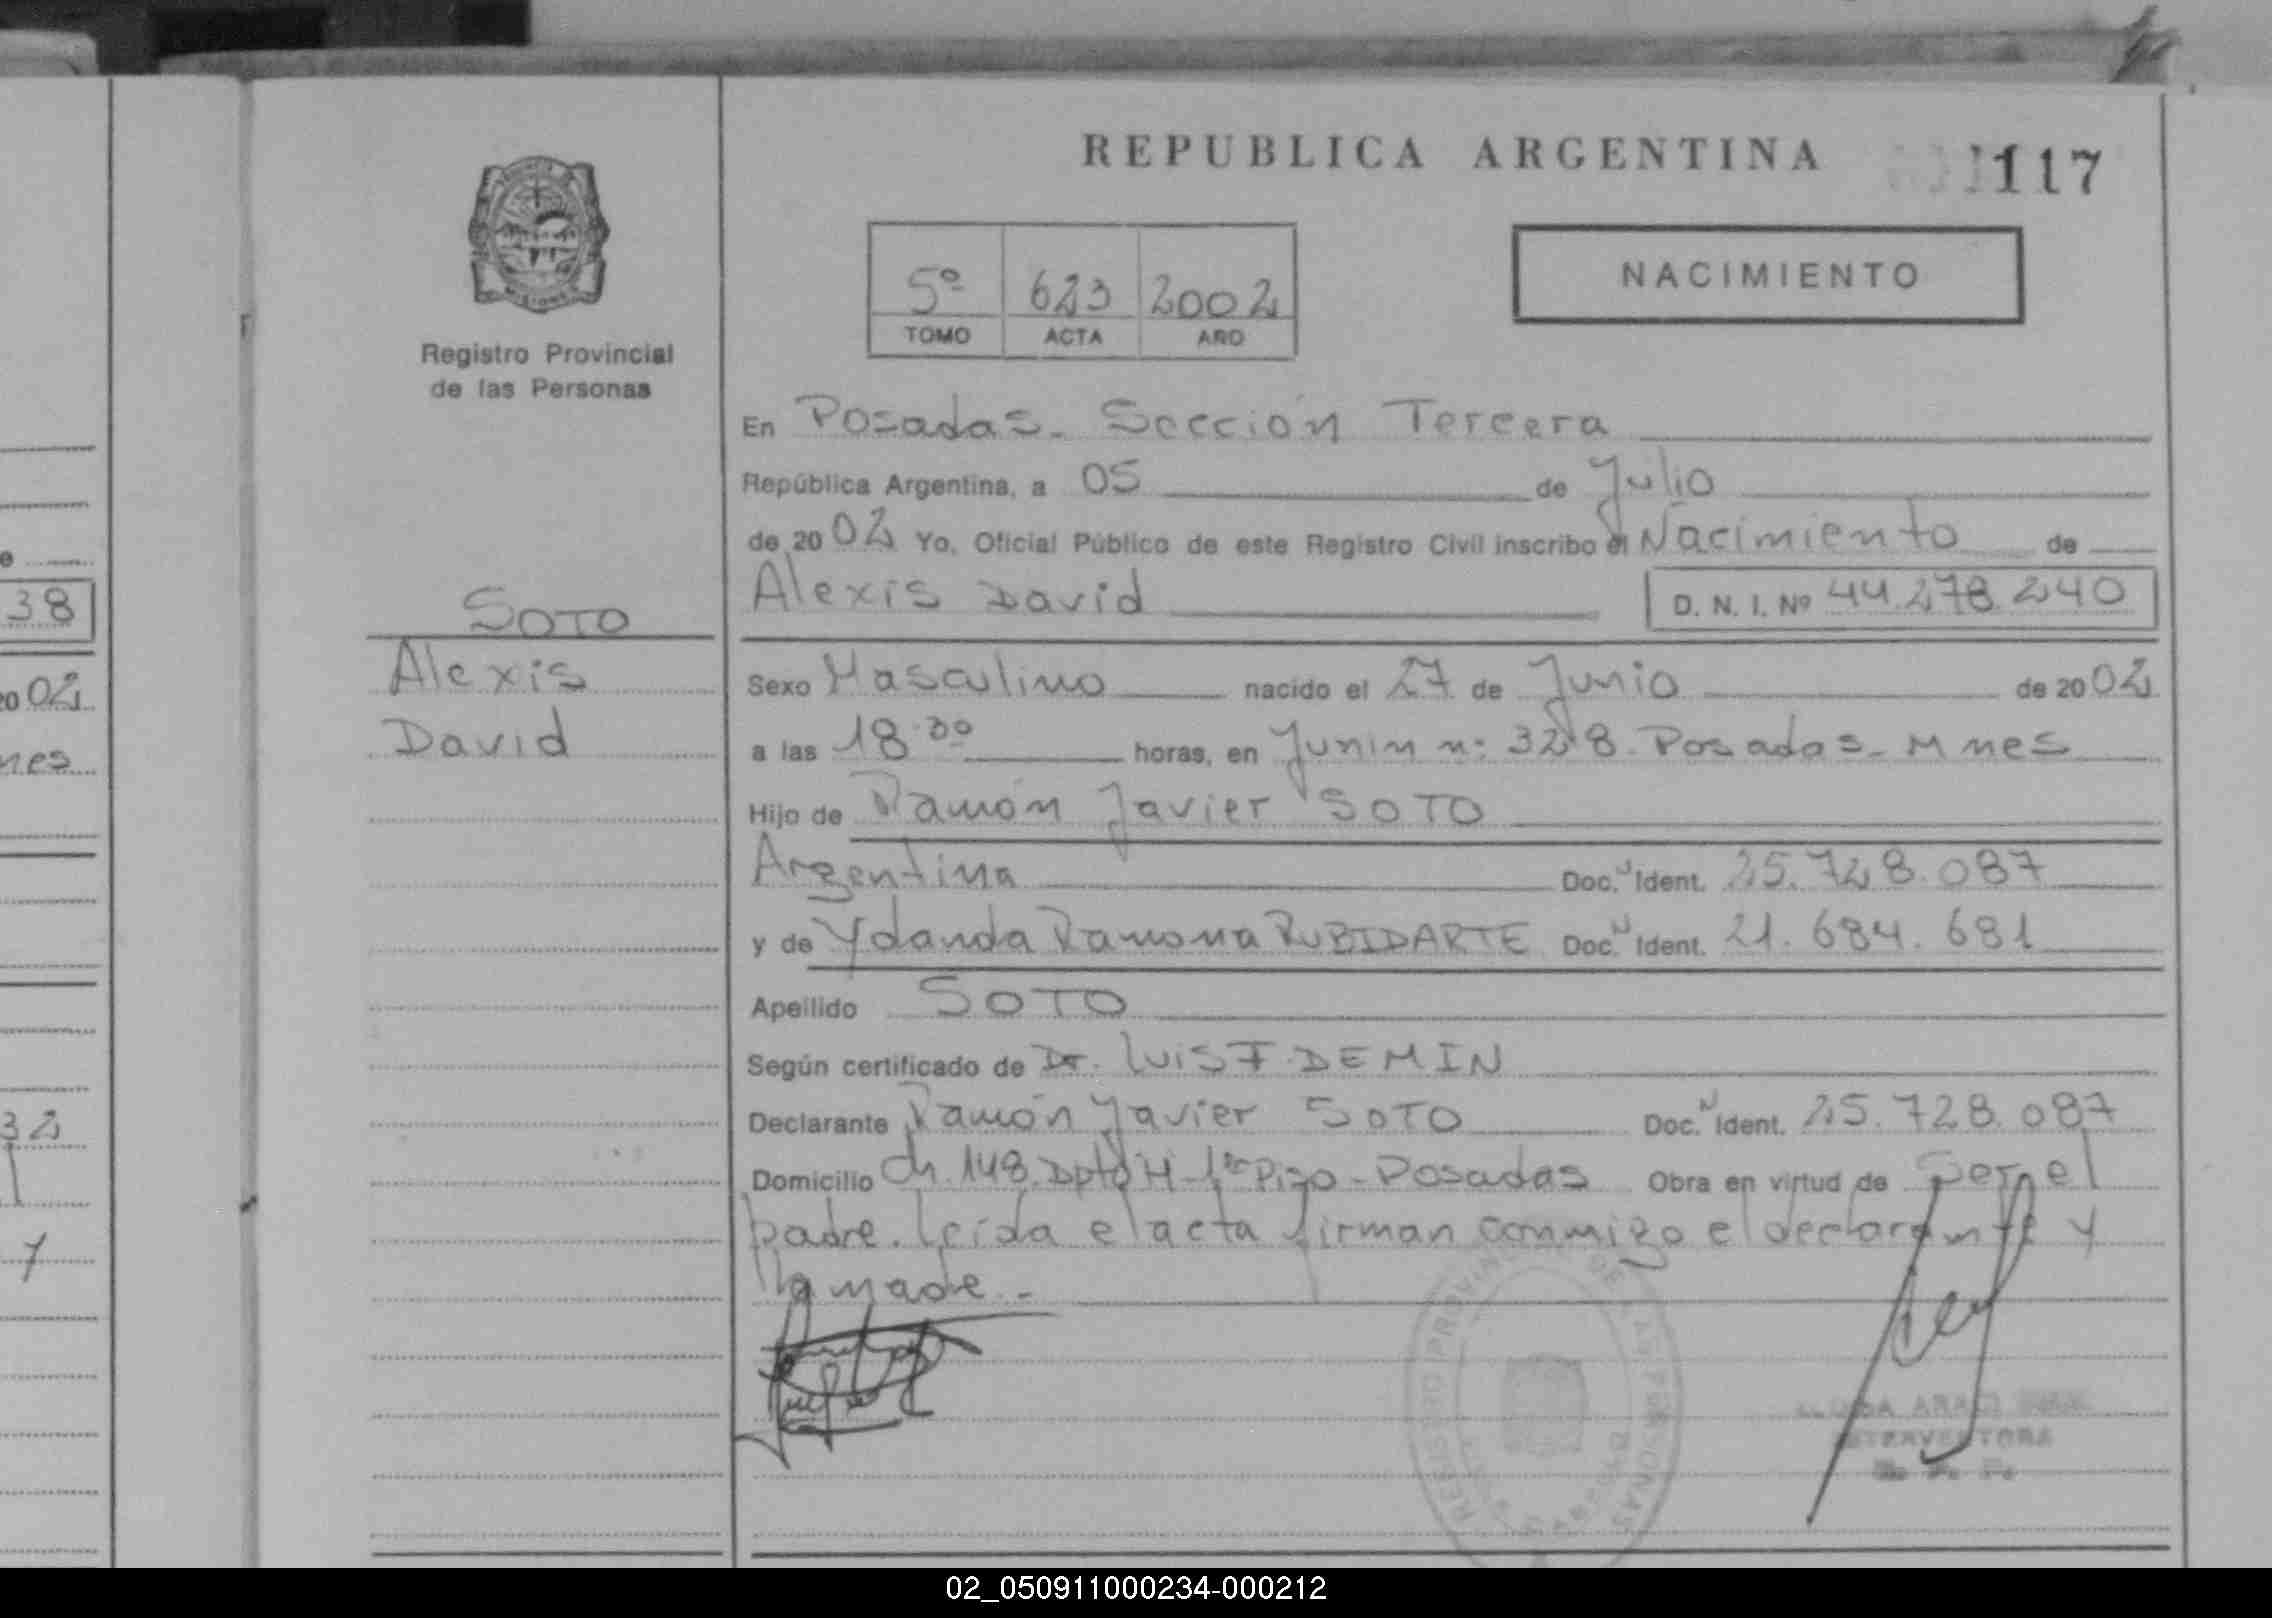 REPUBLICA ARGENTINA
117
MISIONES
Registro Provincial
de las Personas
5º 623 2002
TOMO ACTA AÑO
NACIMIENTO
En Posadas - Sección Tercera
República Argentina, a 05 de Julio
de 2002 Yo, Oficial Público de este Registro Civil inscribo el Nacimiento de
Alexis David D. N. I. Nº 44.278.240
SOTO
Alexis
David
Sexo Masculino nacido el 27 de Junio de 2002
a las 18.30 horas, en Junin n: 328. Posadas - Mnes
Hijo de Ramón Javier SOTO
Argentina Doc. N Ident. 25.728.087
y de Yolanda Ramona RUBIDARTE Doc. N Ident. 21.684.681
Apellido SOTO
Según certificado de Dr. Luis F. DEMIN
Declarante Ramón Javier SOTO Doc. N Ident. 25.728.087
Domicilio Ch. 148. Dpto H - 1er Piso - Posadas Obra en virtud de ser el
padre. Leída el acta firman conmigo el declarante y
la madre. -
REGISTRO PROVINCIAL DE LAS PERSONAS
INTERVENTORA
38
2002
nes
32
y
02_050911000234-000212